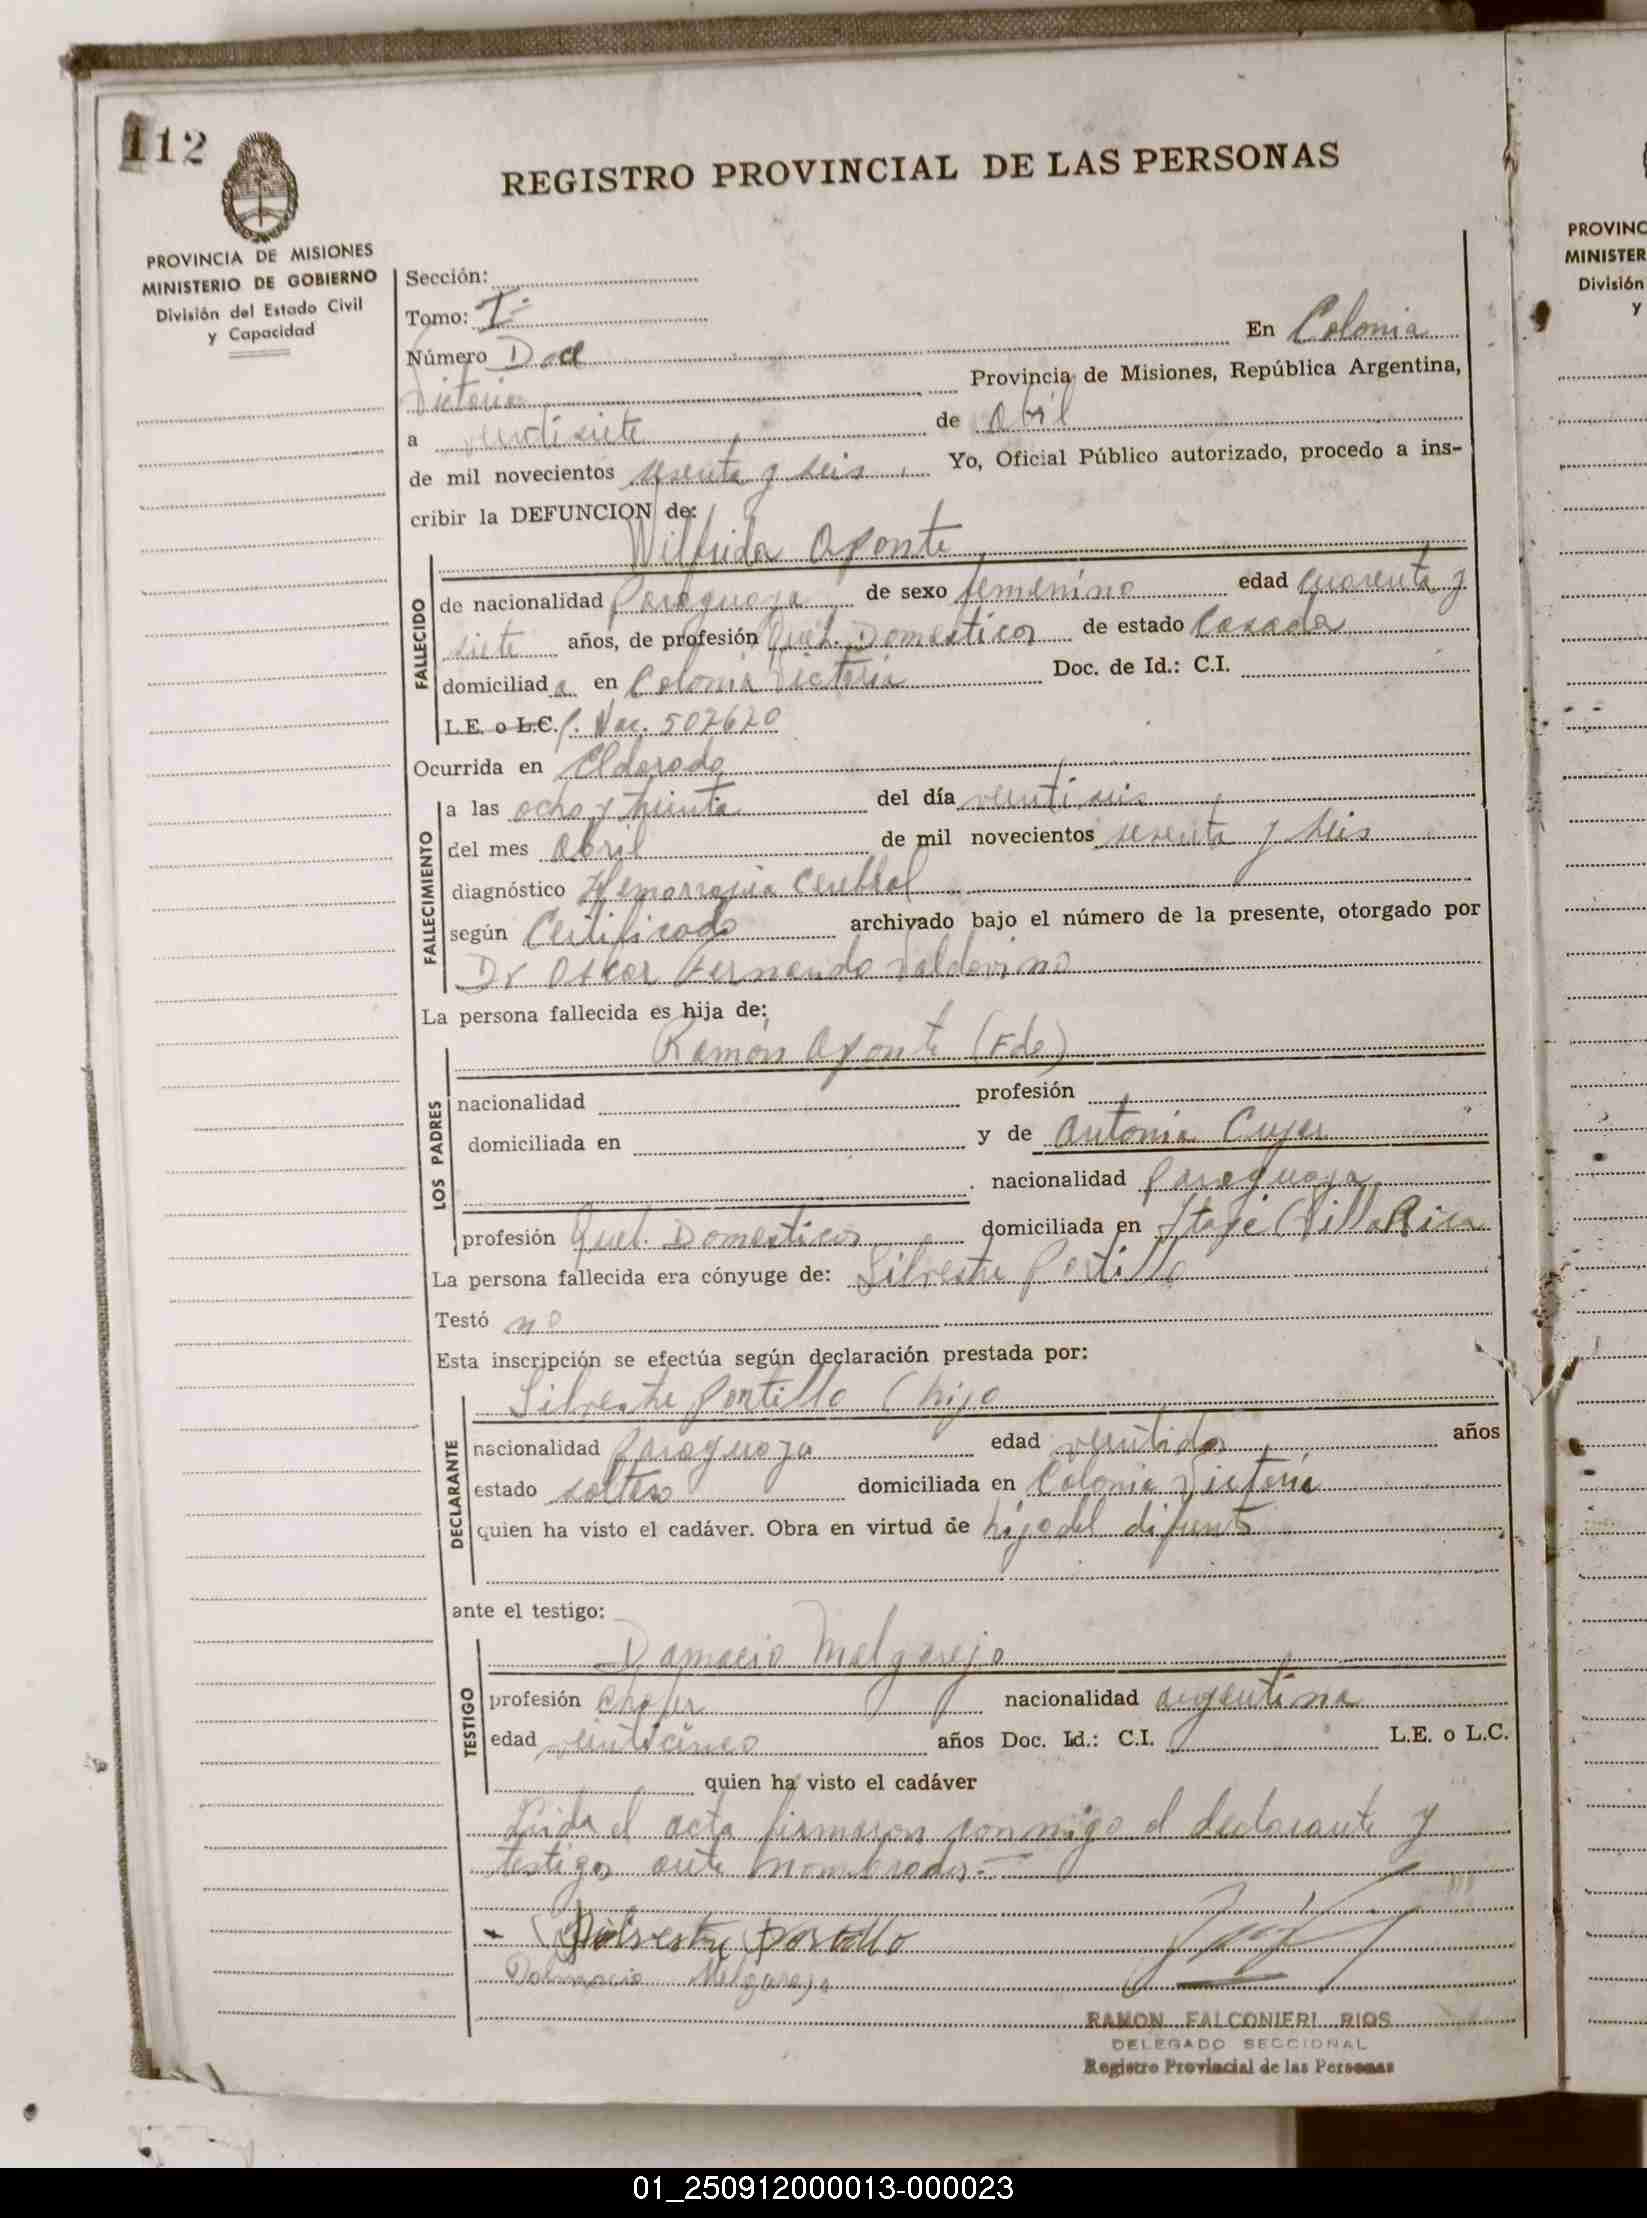 112
REGISTRO PROVINCIAL DE LAS PERSONAS
PROVINCIA DE MISIONES
MINISTERIO DE GOBIERNO
División del Estado Civil
y Capacidad
Sección:
Tomo: I
Número Doce En Colonia
Victoria Provincia de Misiones, República Argentina,
a veintisiete de Abril
de mil novecientos sesenta y seis, Yo, Oficial Público autorizado, procedo a ins-
cribir la DEFUNCION de:
Wilfrida Aponte
FALLECIDO
de nacionalidad Paraguaya de sexo femenino edad cuarenta y
siete años, de profesión Queh. Domesticos de estado Casada
domiciliada en Colonia Victoria Doc. de Id.: C.I.
L.E. o L.C. C. Nac. 507620
Ocurrida en Eldorado
FALLECIMIENTO
a las ocho y treinta del día veintiseis
del mes Abril de mil novecientos sesenta y seis
diagnóstico Hemorragia Cerebral
según Certificado archivado bajo el número de la presente, otorgado por
Dr Oscar Fernando Valdovino
La persona fallecida es hija de:
Ramón Aponte (Fdo)
LOS PADRES
nacionalidad profesión
domiciliada en y de Antonia
nacionalidad Paraguaya
profesión Queh. Domesticos domiciliada en Itapé (Villa Rica
La persona fallecida era cónyuge de: Silvestre Portillo
Testó no
Esta inscripción se efectúa según declaración prestada por:
Silvestre Portillo (hijo
DECLARANTE
nacionalidad Paraguaya edad veintidos años
estado soltero domiciliada en Colonia Victoria
quien ha visto el cadáver. Obra en virtud de hijo del difunto
ante el testigo:
Damacio Melgarejo
TESTIGO
profesión chofer nacionalidad argentina
edad veinticinco años Doc. Id.: C.I. L.E. o L.C.
quien ha visto el cadáver
Leida el acta firmaron conmigo el declarante y
testigos ante nombrados.-
Silvestre Portillo
Dalmacio Melgarejo
RAMON FALCONIERI RIOS
DELEGADO SECCIONAL
Registro Provincial de las Personas
PROVINC
MINISTER
División
y
01_250912000013-000023